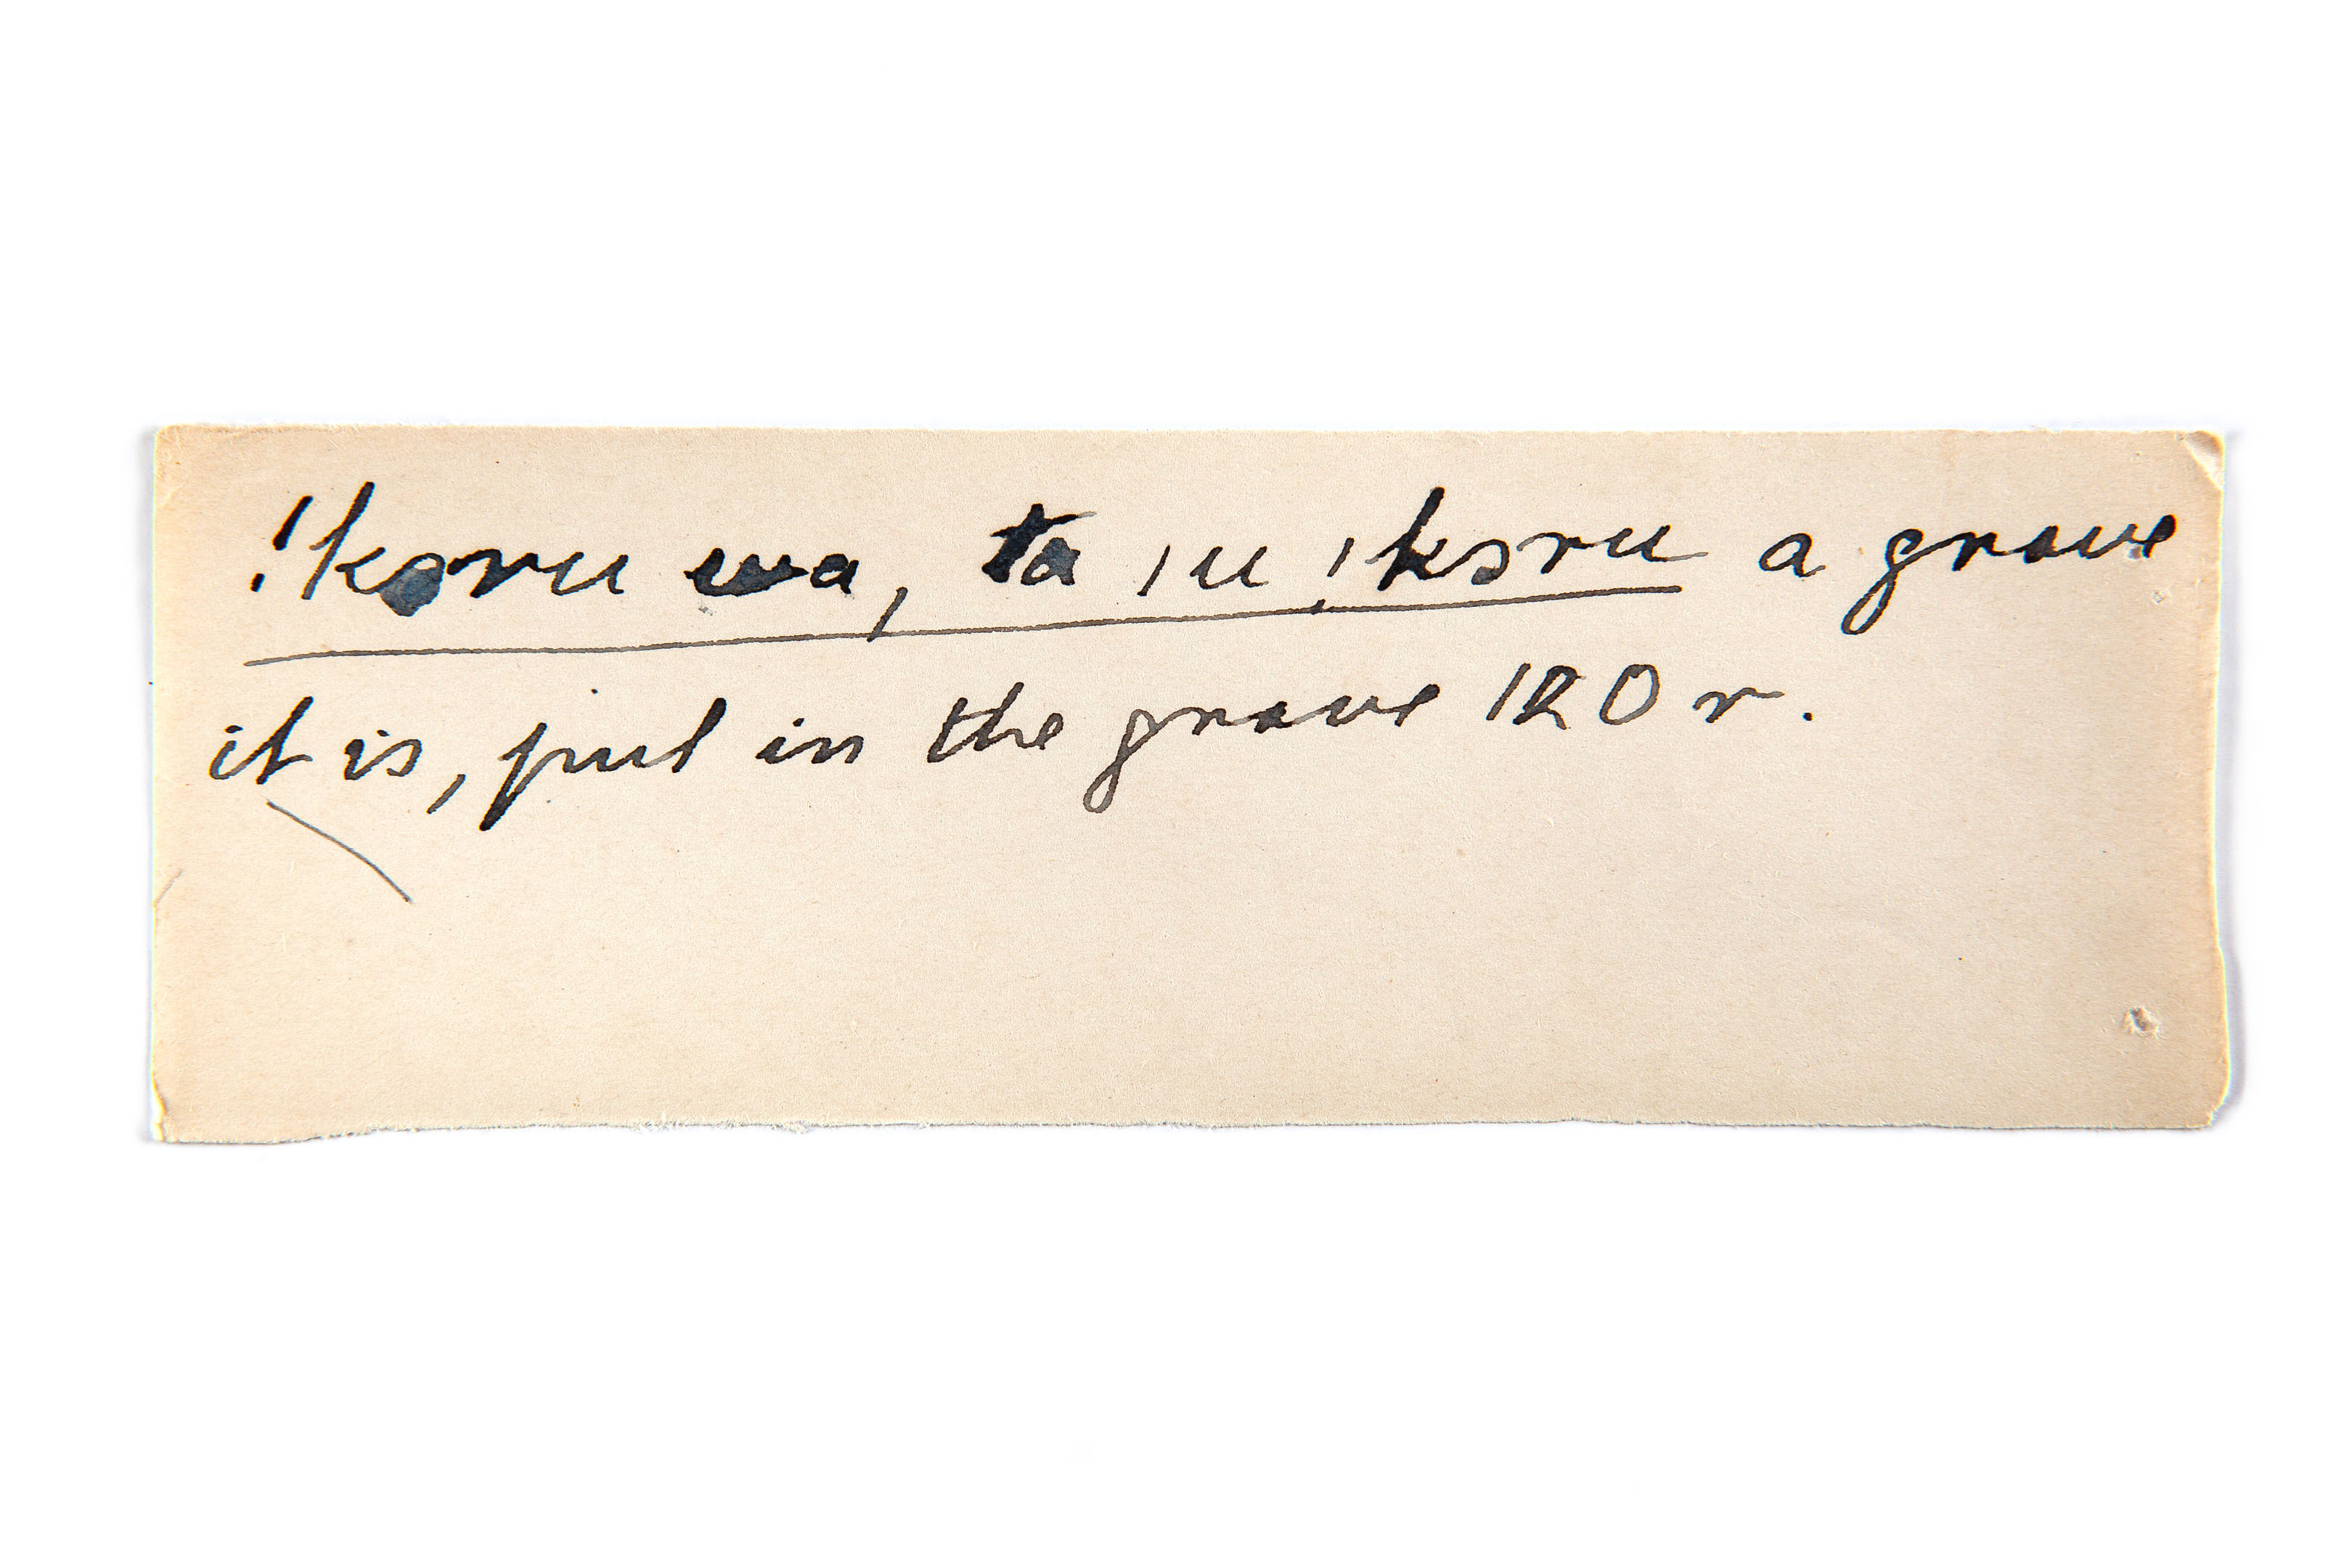 !kɔru wa, ta /u !kɔru a grave
it is, put in the grave 120 r.